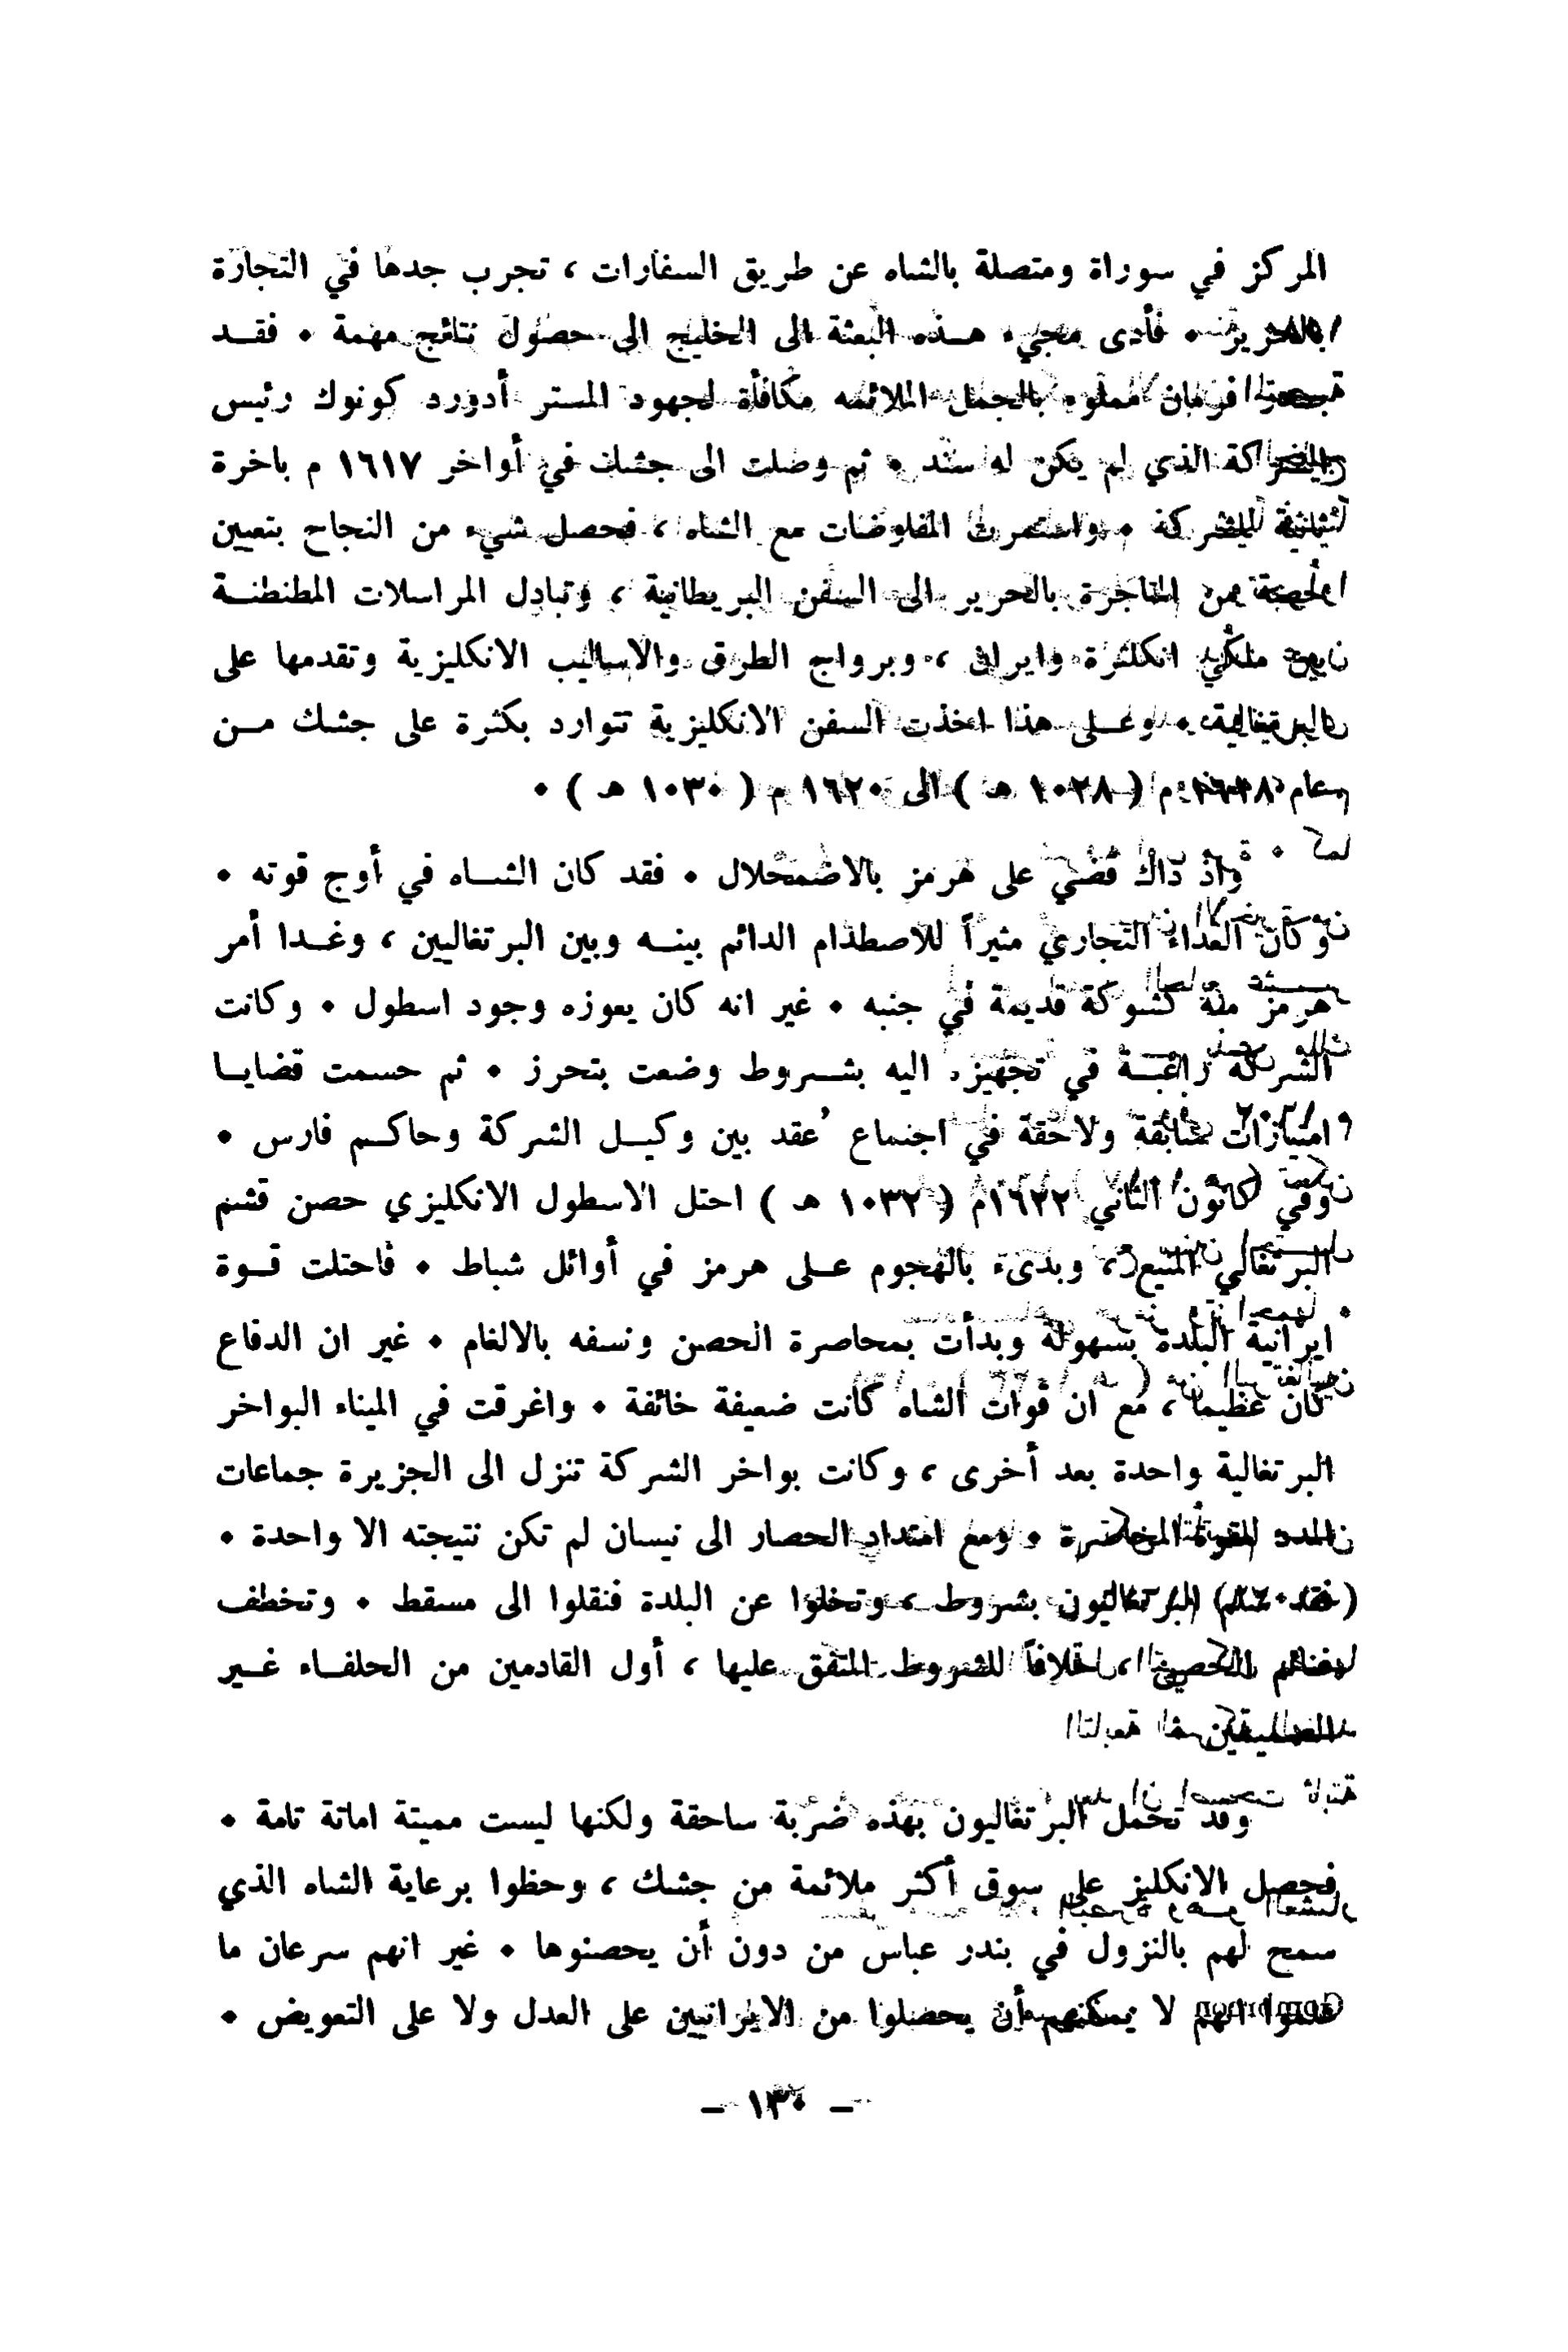 المركز في سوراة ومتصلة بالشاه عن طريق السفارات ، تجرب جدها في التجارة
بالحرير • فأدى مجيء هذه البعثة الى الخليج الى حصول نتائج مهمة • فقد
صدر فرمان مملوء بالجمل الملائمه مكافأة لجهود المستر أدورد كونوك رئيس
الشركة الذي لم يكن له سند • ثم وصلت الى جشك في أواخر ١٦١٧ م باخرة
ثانية للشركة • واستمرت المفاوضات مع الشاه ، فحصل شيء من النجاح بتعيين
حصة من المتاجرة بالحرير الى السفن البريطانية ، وتبادل المراسلات المطنطنة
بين ملكي انكلترة وايران ، وبرواج الطرق والاساليب الانكليزية وتقدمها على
البرتغالية • وعلى هذا اخذت السفن الانكليزية تتوارد بكثرة على جشك من
عام ١٦١٨ م ( ١٠٢٨ هـ ) الى ١٦٢٠ م ( ١٠٣٠ هـ ) •
واذ ذاك قضي على هرمز بالاضمحلال • فقد كان الشاه في أوج قوته •
وكان العداء التجاري مثيراً للاصطدام الدائم بينه وبين البرتغاليين ، وغدا أمر
هرمز منه كشوكة قديمة في جنبه • غير انه كان يعوزه وجود اسطول • وكانت
الشركة راغبة في تجهيزه اليه بشروط وضعت بتحرز • ثم حسمت قضايا
امتيازات سابقة ولاحقة في اجتماع عُقد بين وكيل الشركة وحاكم فارس •
وفي كانون الثاني ١٦٢٢م ( ١٠٣٢ هـ ) احتل الاسطول الانكليزي حصن قشم
البرتغالي المنيع ، وبدىء بالهجوم على هرمز في أوائل شباط • فاحتلت قوة
ايرانية البلدة بسهولة وبدأت بمحاصرة الحصن ونسفه بالالغام • غير ان الدفاع
كان عظيما ، مع ان قوات الشاه كانت ضعيفة خائفة • واغرقت في الميناء البواخر
البرتغالية واحدة بعد أخرى ، وكانت بواخر الشركة تنزل الى الجزيرة جماعات
المدد للقوة المحاصرة • ومع امتداد الحصار الى نيسان لم تكن نتيجته الا واحدة •
فقد سلم البرتغاليون بشروط ، وتخلوا عن البلدة فنقلوا الى مسقط • وتخطف
غنائم الحصن ، خلافاً للشروط المتفق عليها ، أول القادمين من الحلفاء غير
الصديقين
وقد تحمل البرتغاليون بهذه ضربة ساحقة ولكنها ليست مميتة اماتة تامة •
فحصل الانكليز على سوق أكثر ملائمة من جشك ، وحظوا برعاية الشاه الذي
سمح لهم بالنزول في بندر عباس من دون أن يحصنوها • غير انهم سرعان ما
علموا انهم لا يمكنهم أن يحصلوا من الايرانيين على العدل ولا على التعويض •
– ١٣٠ –